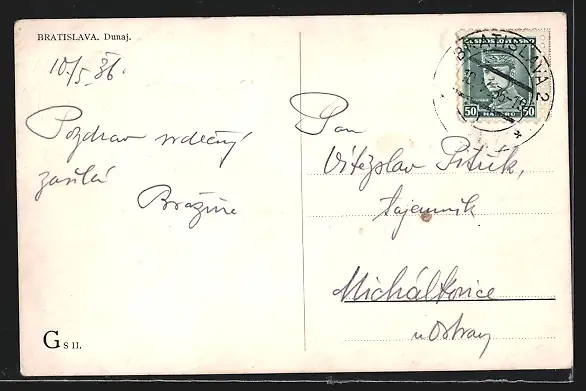 BRATISLAVA. Dunaj.
10/5 36.
Pozdrav srdečný
zasílá
Pan
Vítězslav
tajemník
Michálkovice
u Ostravy
G S 11.
BRATISLAVA 2
ČESKOSLOVENSKO
50 HALÉŘŮ 50